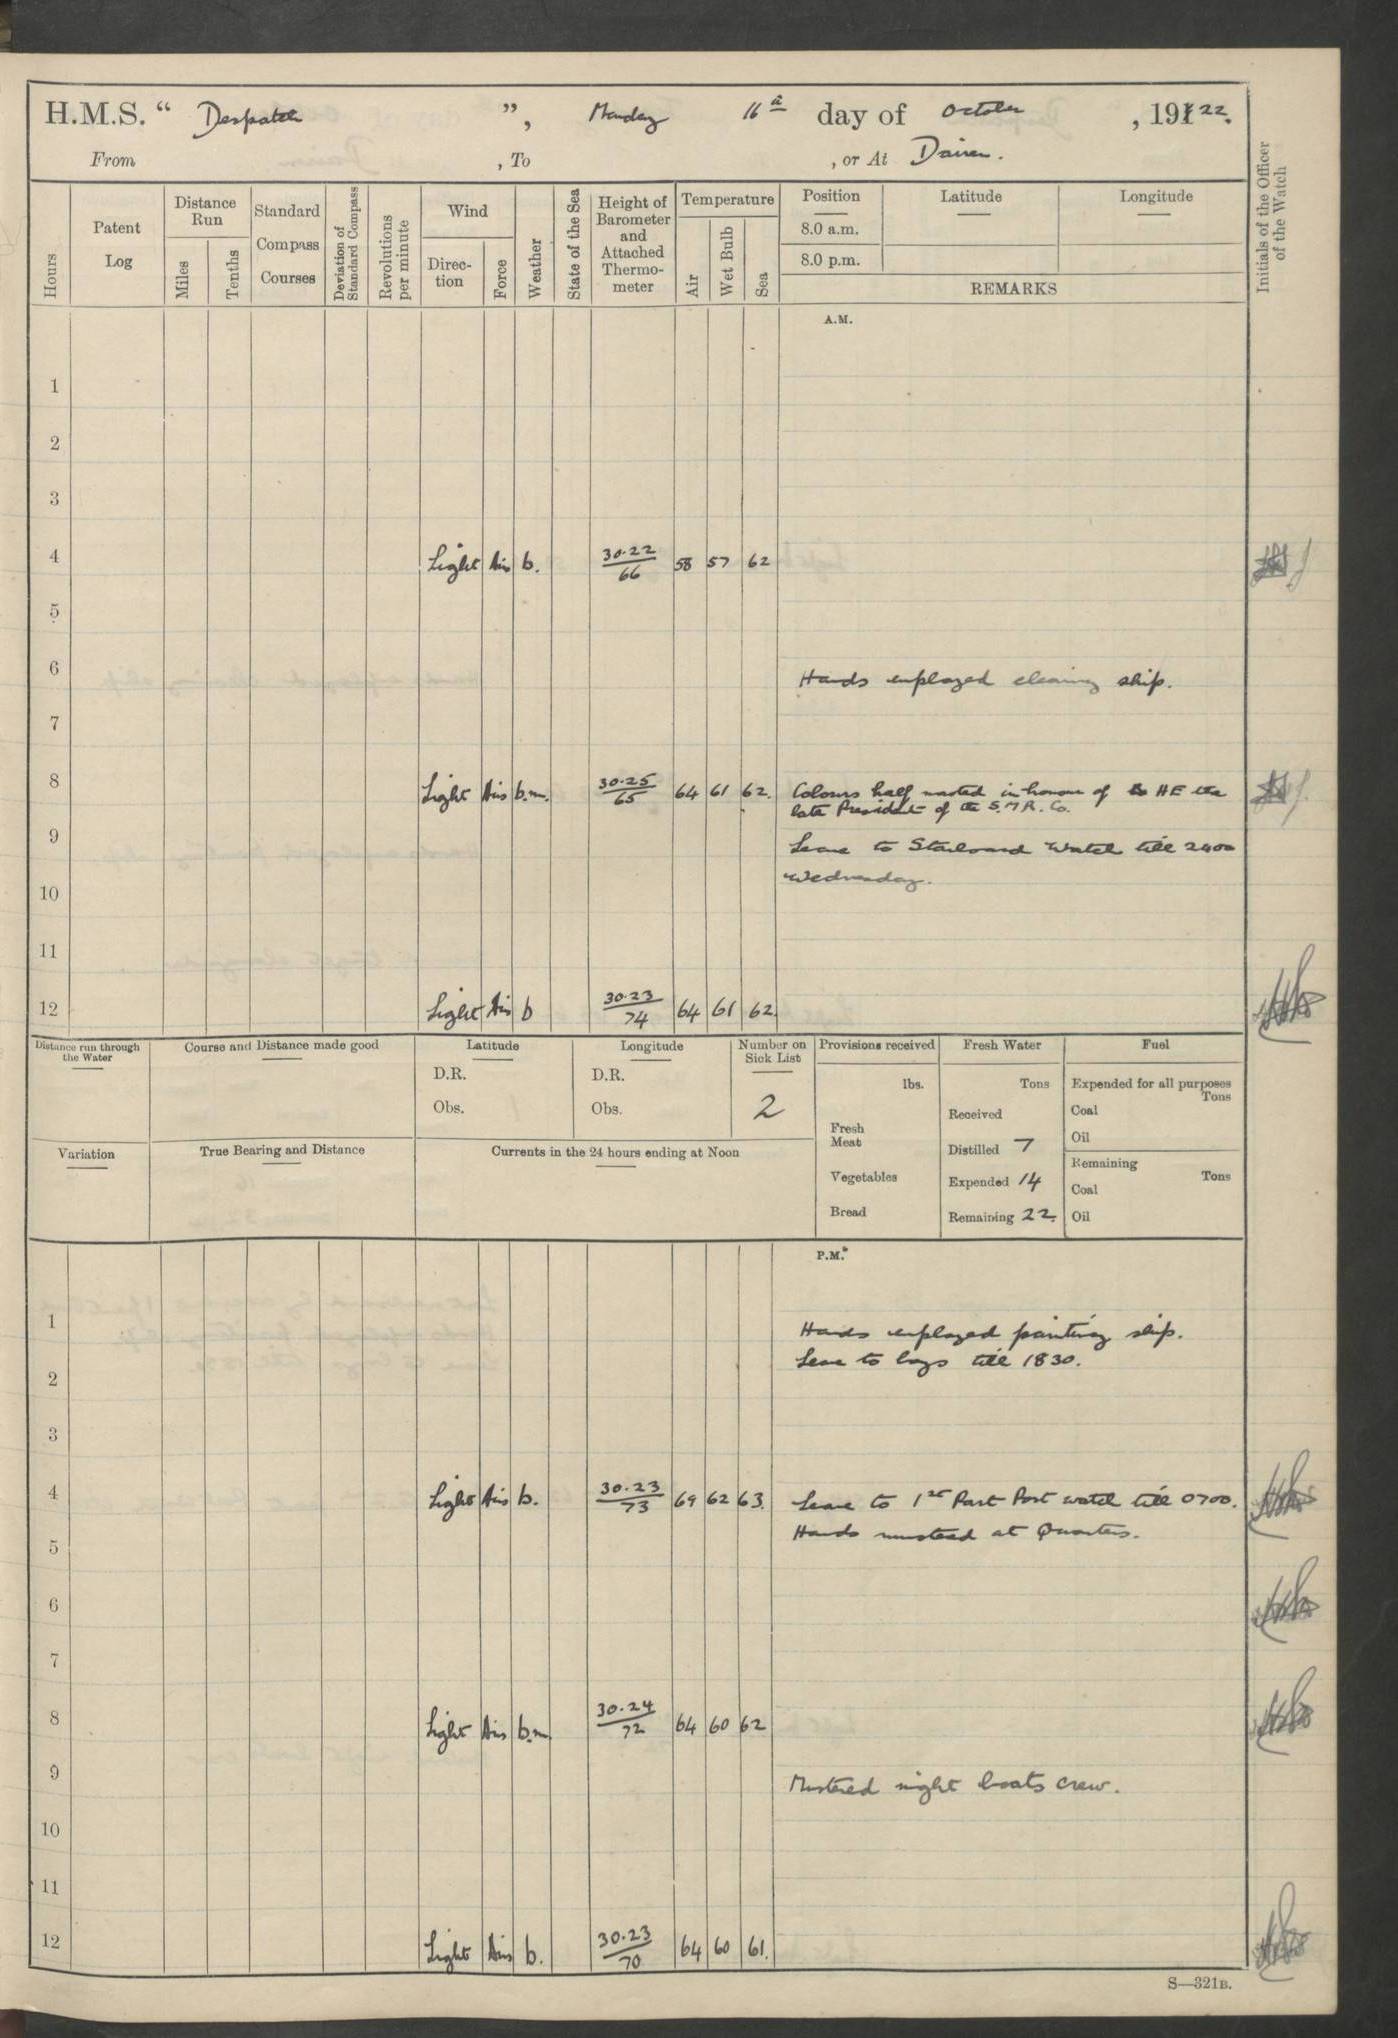 H.M.S. “ Despatch ”, Monday 16th day of October , 191 22.
From , To , or At Dairen.
Hours
Patent Log
Distance Run
Miles
Tenths
Standard Compass Courses
Deviation of Standard Compass
Revolutions per minute
Wind
Direction
Force
Weather
State of the Sea
Height of Barometer and Attached Thermometer
Temperature
Air
Wet Bulb
Sea
Position
8.0 a.m.
8.0 p.m.
Latitude
Longitude
REMARKS
Initials of the Officer of the Watch
A.M.
1
2
3
4 Light Airs b. 30.22/66 58 57 62
5
6 Hands employed cleaning ship.
7
8 Light Airs b.m. 30.25/65 64 61 62. Colours half masted in honour of HE the
late President of the S.M.R. Co.
9 Leave to Starboard Watch till 2400
10 Wednesday.
11
12 Light Airs b 30.23/74 64 61 62.
Distance run through the Water
Course and Distance made good
Latitude
D.R.
Obs.
Longitude
D.R.
Obs.
Number on Sick List
2
Provisions received
lbs.
Fresh Meat
Vegetables
Bread
Fresh Water
Tons
Received
Distilled 7
Expended 14
Remaining 22.
Fuel
Expended for all purposes
Tons
Coal
Oil
Remaining
Tons
Coal
Oil
Variation
True Bearing and Distance
Currents in the 24 hours ending at Noon
P.M.
1 Hands employed painting ship.
Leave to boys till 1830.
2
3
4 Light Airs b. 30.23/73 69 62 63. Leave to 1st Part Port watch till 0700.
Hands mustered at Quarters.
5
6
7
8 Light Airs b.m 30.24/72 64 60 62
9 Mustered night boats crew.
10
11
12 Light Airs b. 30.23/70 64 60 61.
S—321B.